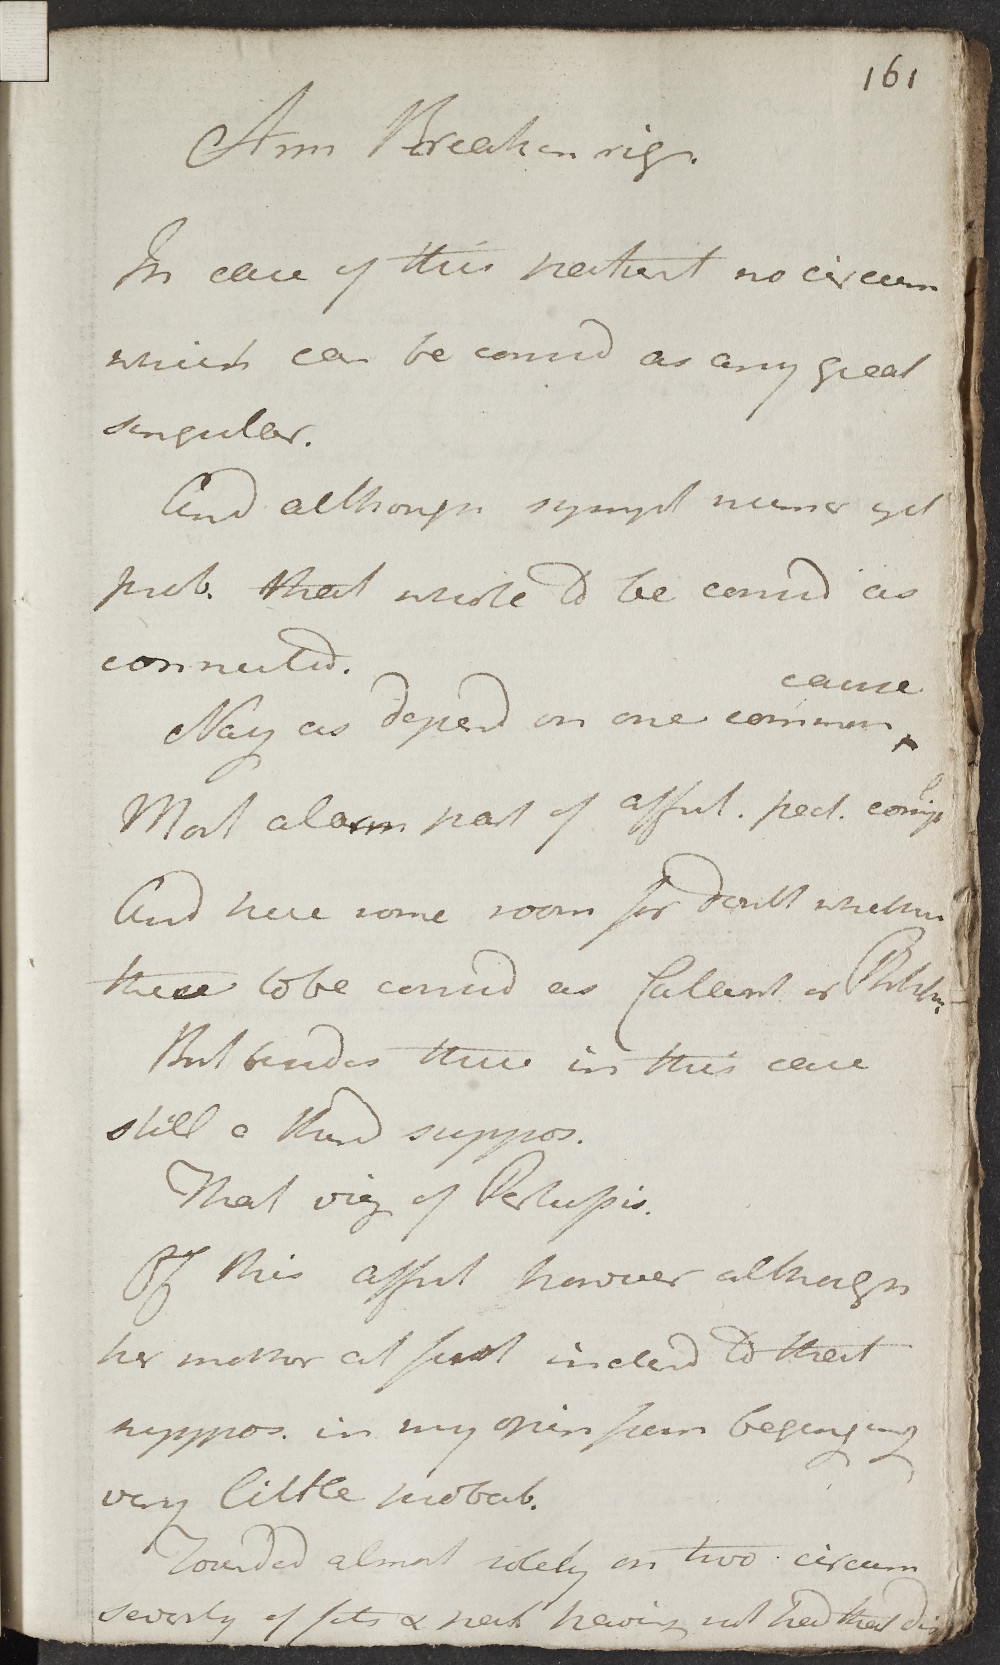 161
Ann Breakenrig.
In case of this patient no circum
which can be consid as any great
singular.
And although sympt numer yet
prob. that whole to be consid as
connected.
cause
Nay as depend on one common ^
Most alarm part of affect. pect. comp
And here some room for doubt whether
these to be consid as Catarrh or Phthis
But besides these in this case
still a third suppos.
That viz of Pertussis.
Of this affect however although
her mother at first inclend to that
suppos. in my opin from begining
very little probab.
Founded almost solely on two circum
severity of fits & pat having not had that dis